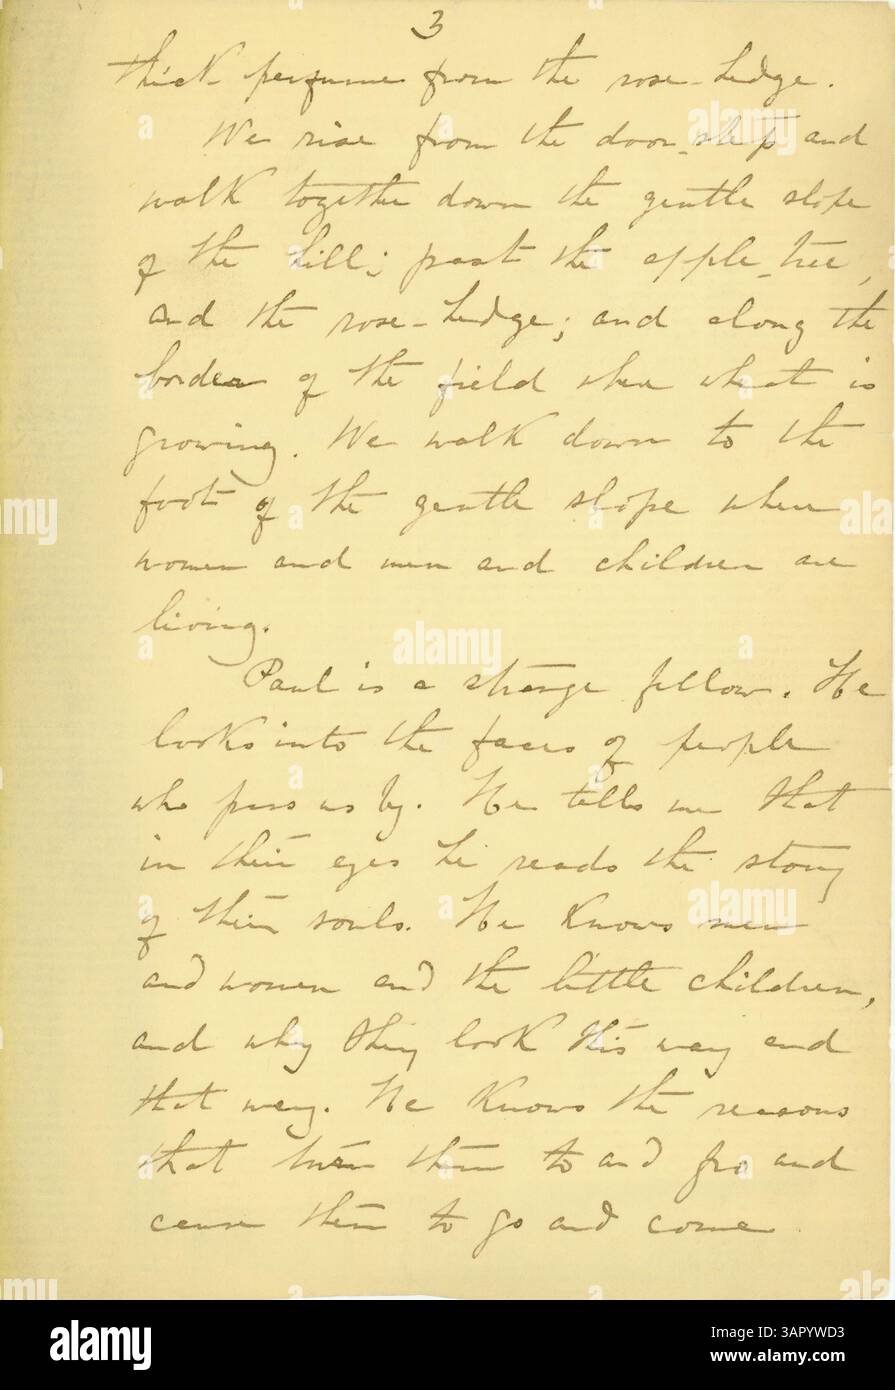 3
thick perfume from the rose-hedge.
We rise from the door-step and
walk together down the gentle slope
of the hill; past the apple-tree,
and the rose-hedge; and along the
border of the field where wheat is
growing. We walk down to the
foot of the gentle slope where
women and men and children are
living.
Paul is a strange fellow. He
looks into the faces of people
who pass us by. He tells me that
in their eyes he reads the story
of their souls. He knows men
and women and the little children,
and why they look this way and
that way. He knows the reasons
that turn them to and fro and
cause them to go and come
alamy
Image ID: 3APYWD3
www.alamy.com